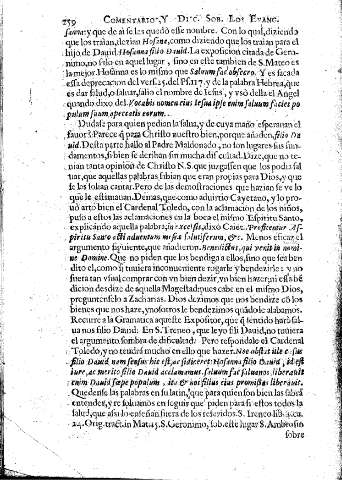 259 COMENTARIO, Y DISC. SOB. LOS EVANG.
sanna: y que de aì se les quedò esse nombre. Con lo qual, diziendo
que los traìan, dezian Hosana, como diziendo que los traìan para el
hijo de Dauid, Hosanna filio Dauid. La exposicion citada de Gero-
nimo, no solo en aquel lugar, sino en este tambien de S. Mateo es
la mejor. Hosanna es lo mismo que Saluum fac obsecro. Y es sacada
essa deprecacion del vers. 25. del Ps. 117. y de la palabra Hebrea, que
es dar salud, o saluar, salio el nombre de Iesus, y vsò della el Angel
quando dixo del. Vocabis nomen eius Iesus ipse enim saluum faciet po
pulum suum, a peccatis eorum.
Dudase para quien pedian la salud, y de cuya mano esperauan el
fauor? Parece q̃ para Christo nuestro bien, porque añaden, filio Da
uid. Desta parte hallo al Padre Maldonado, no son lugares sus fun-
damentos, si bien se deriban sin mucha dificultad. Dize, que no te-
nian tanta opinion de Christo N. S. que juzgassen que los podia sal
uar, que aquellas palabras sabian que eran propias para Dios, y que
se los solian cantar. Pero de las demostraciones que hazian se ve lo
que le estimauan. Demas, que como aduirtio Cayetano, y lo pro-
uò arto bien el Cardenal Toledo, con la aclamacion de los niños,
puso a estos las aclamaciones en la boca el mismo Espiritu Santo,
explicando aquella palabra, in excelsis, dixo Caiet.
spiritu Sancto
argumento siguiente, que añadieron. Benedictus, qui venit in nomi-
ne Domine. Que no piden que los bendiga a ellos, sino que sea ben
dito el, como si tuuiera inconueniente rogarle y bendezirle: y no
fuera tan vsual, comprar con vn bien dezir, vn bien hazer, ni essa bẽ
dicion desdize de aquella Magestad, pues cabe en el mismo Dios,
preguntenselo a Zacharias. Dios dezimos que nos bendize cõ los
bienes que nos haze, y nosotros le bendezimos quãdo le alabamos.
Recurre a la Gramatica aqueste Expositor, que q̃ sentido harà sal-
ua nos filio Dauid: En S. Ireneo, que leyo fili Dauid, no tuuiera
el argumento sombra de dificultad. Pero respondale el Cardenal
Toledo, y no tendrà mucho en ello que hazer. Non obstat ille casus
filio Dauid nam sensus hic est, ac si diceret Hosanna filio Dauid, id est
iure, ac merito filio Dauid acclamamus. saluum fac saluanos, liberauit
enim Dauid sæpe populum, ita & nos filius eius promissus liberauit.
Quedense las palabras en su latin, que para quien son bien las sabrà
entender, y resoluamos en seguir que piden para si estos todos la
salud, que assi lo enseñan fuera de los referidos. S. Ireneo lib. 4. ca.
24. Orig. tract. in Mat. 15. S. Geronimo, sob. este lugar S. Ambrosio
sobre